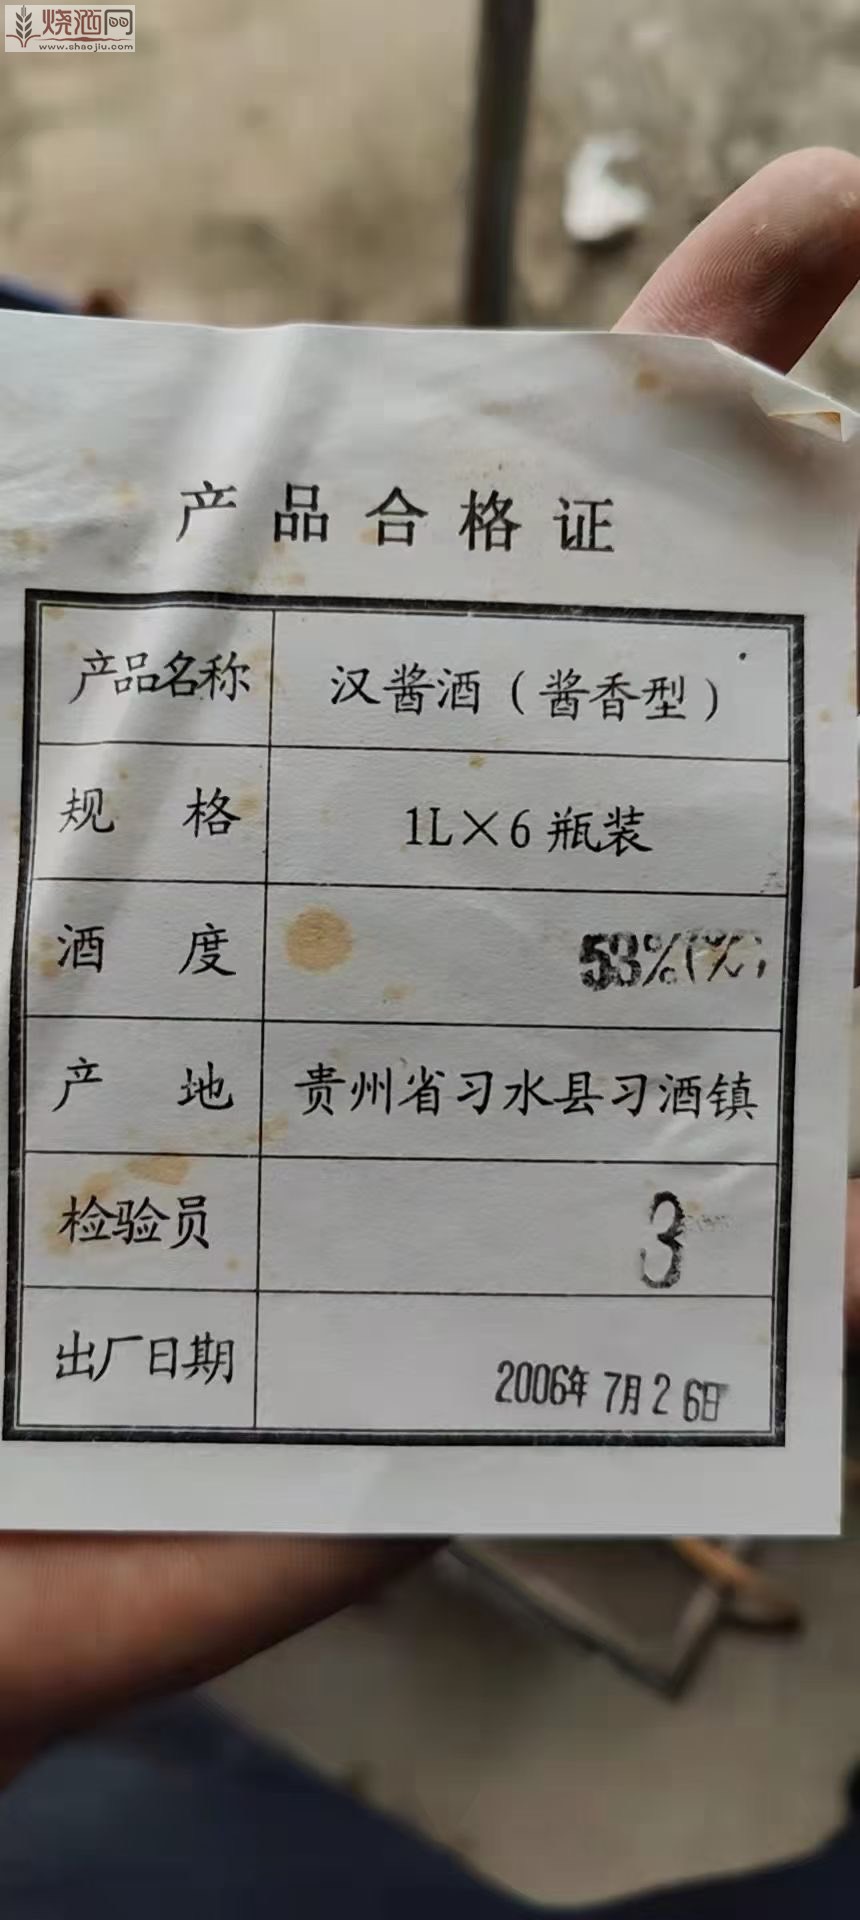 烧酒网
www.shaojiu.com
产品合格证
产品名称 汉酱酒（酱香型）
规格 1L×6瓶装
酒度 53%(%)
产地 贵州省习水县习酒镇
检验员 3
出厂日期 2006年7月26日